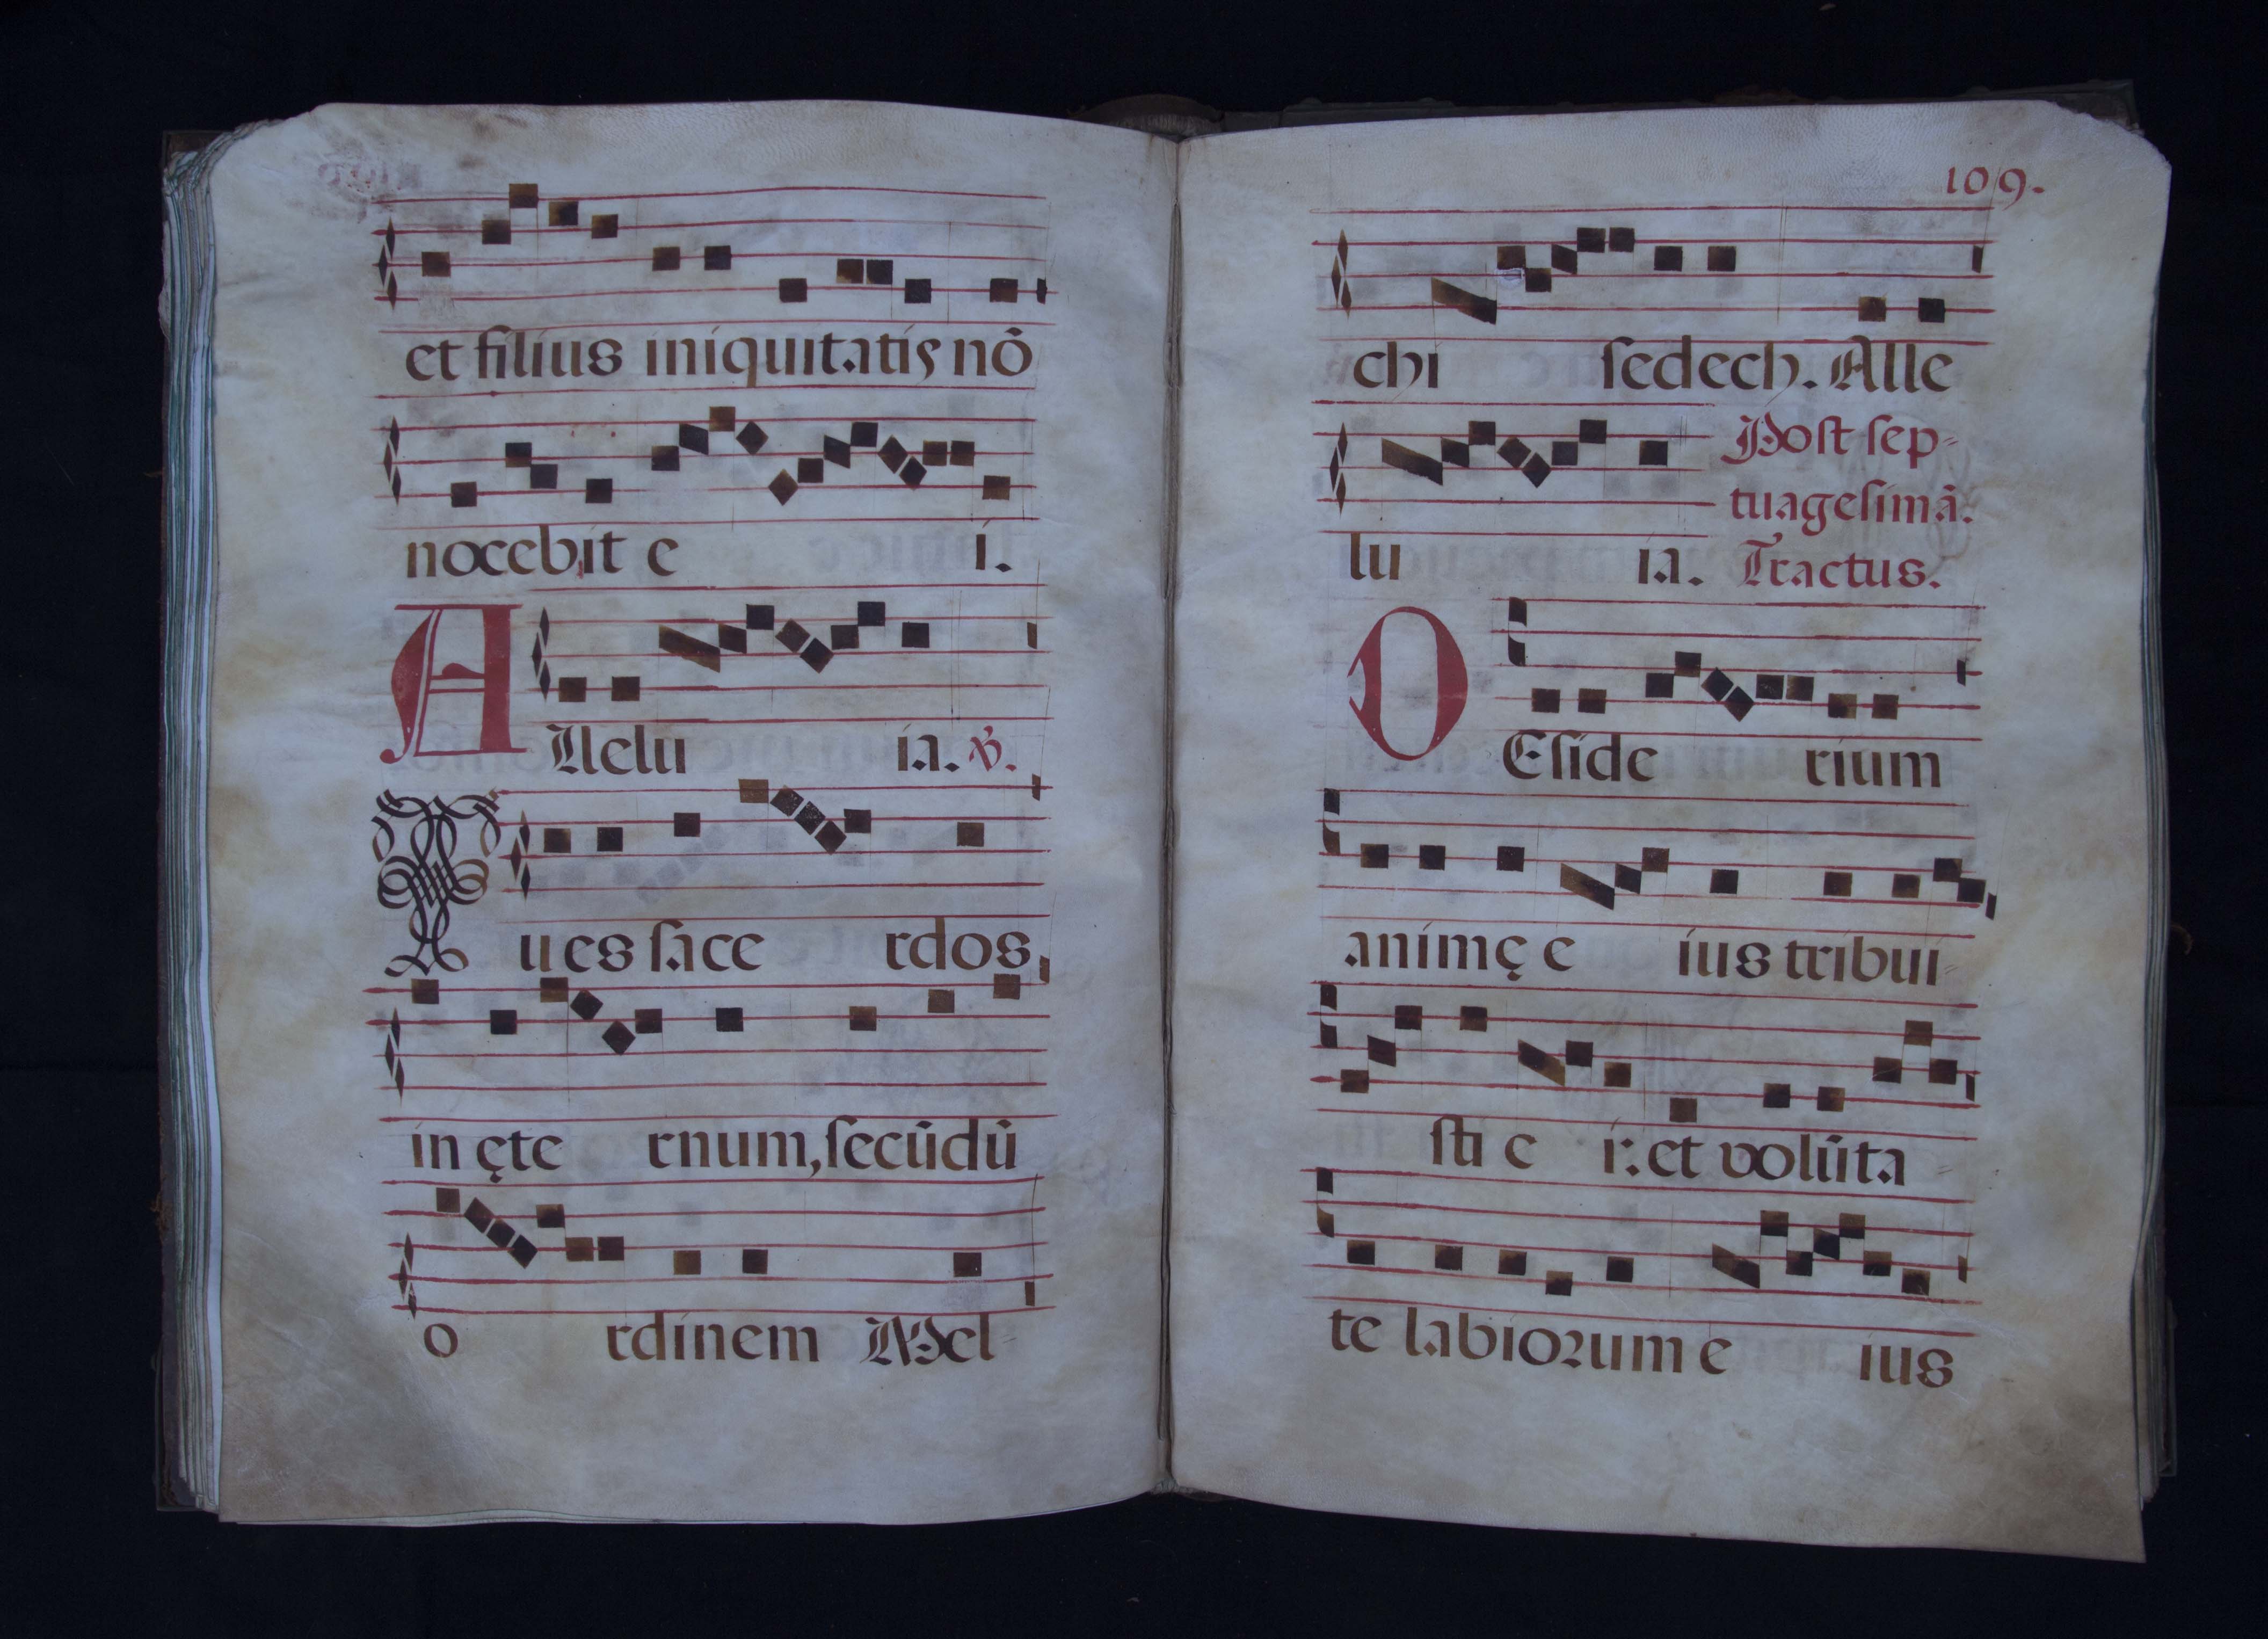 et filius iniquitatis nõ
nocebit e i.
A lleliu ia. ℣.
T u es sace rdos
in ęte rnum, secũdũ
o rdinem Mel-
109.
chi sedech. Alle
lu ia.
Post sep-
tuagesimã.
Tractus.
D Eside rium
animę e ius tribui-
sti e i: et volũta-
te labiorum e ius